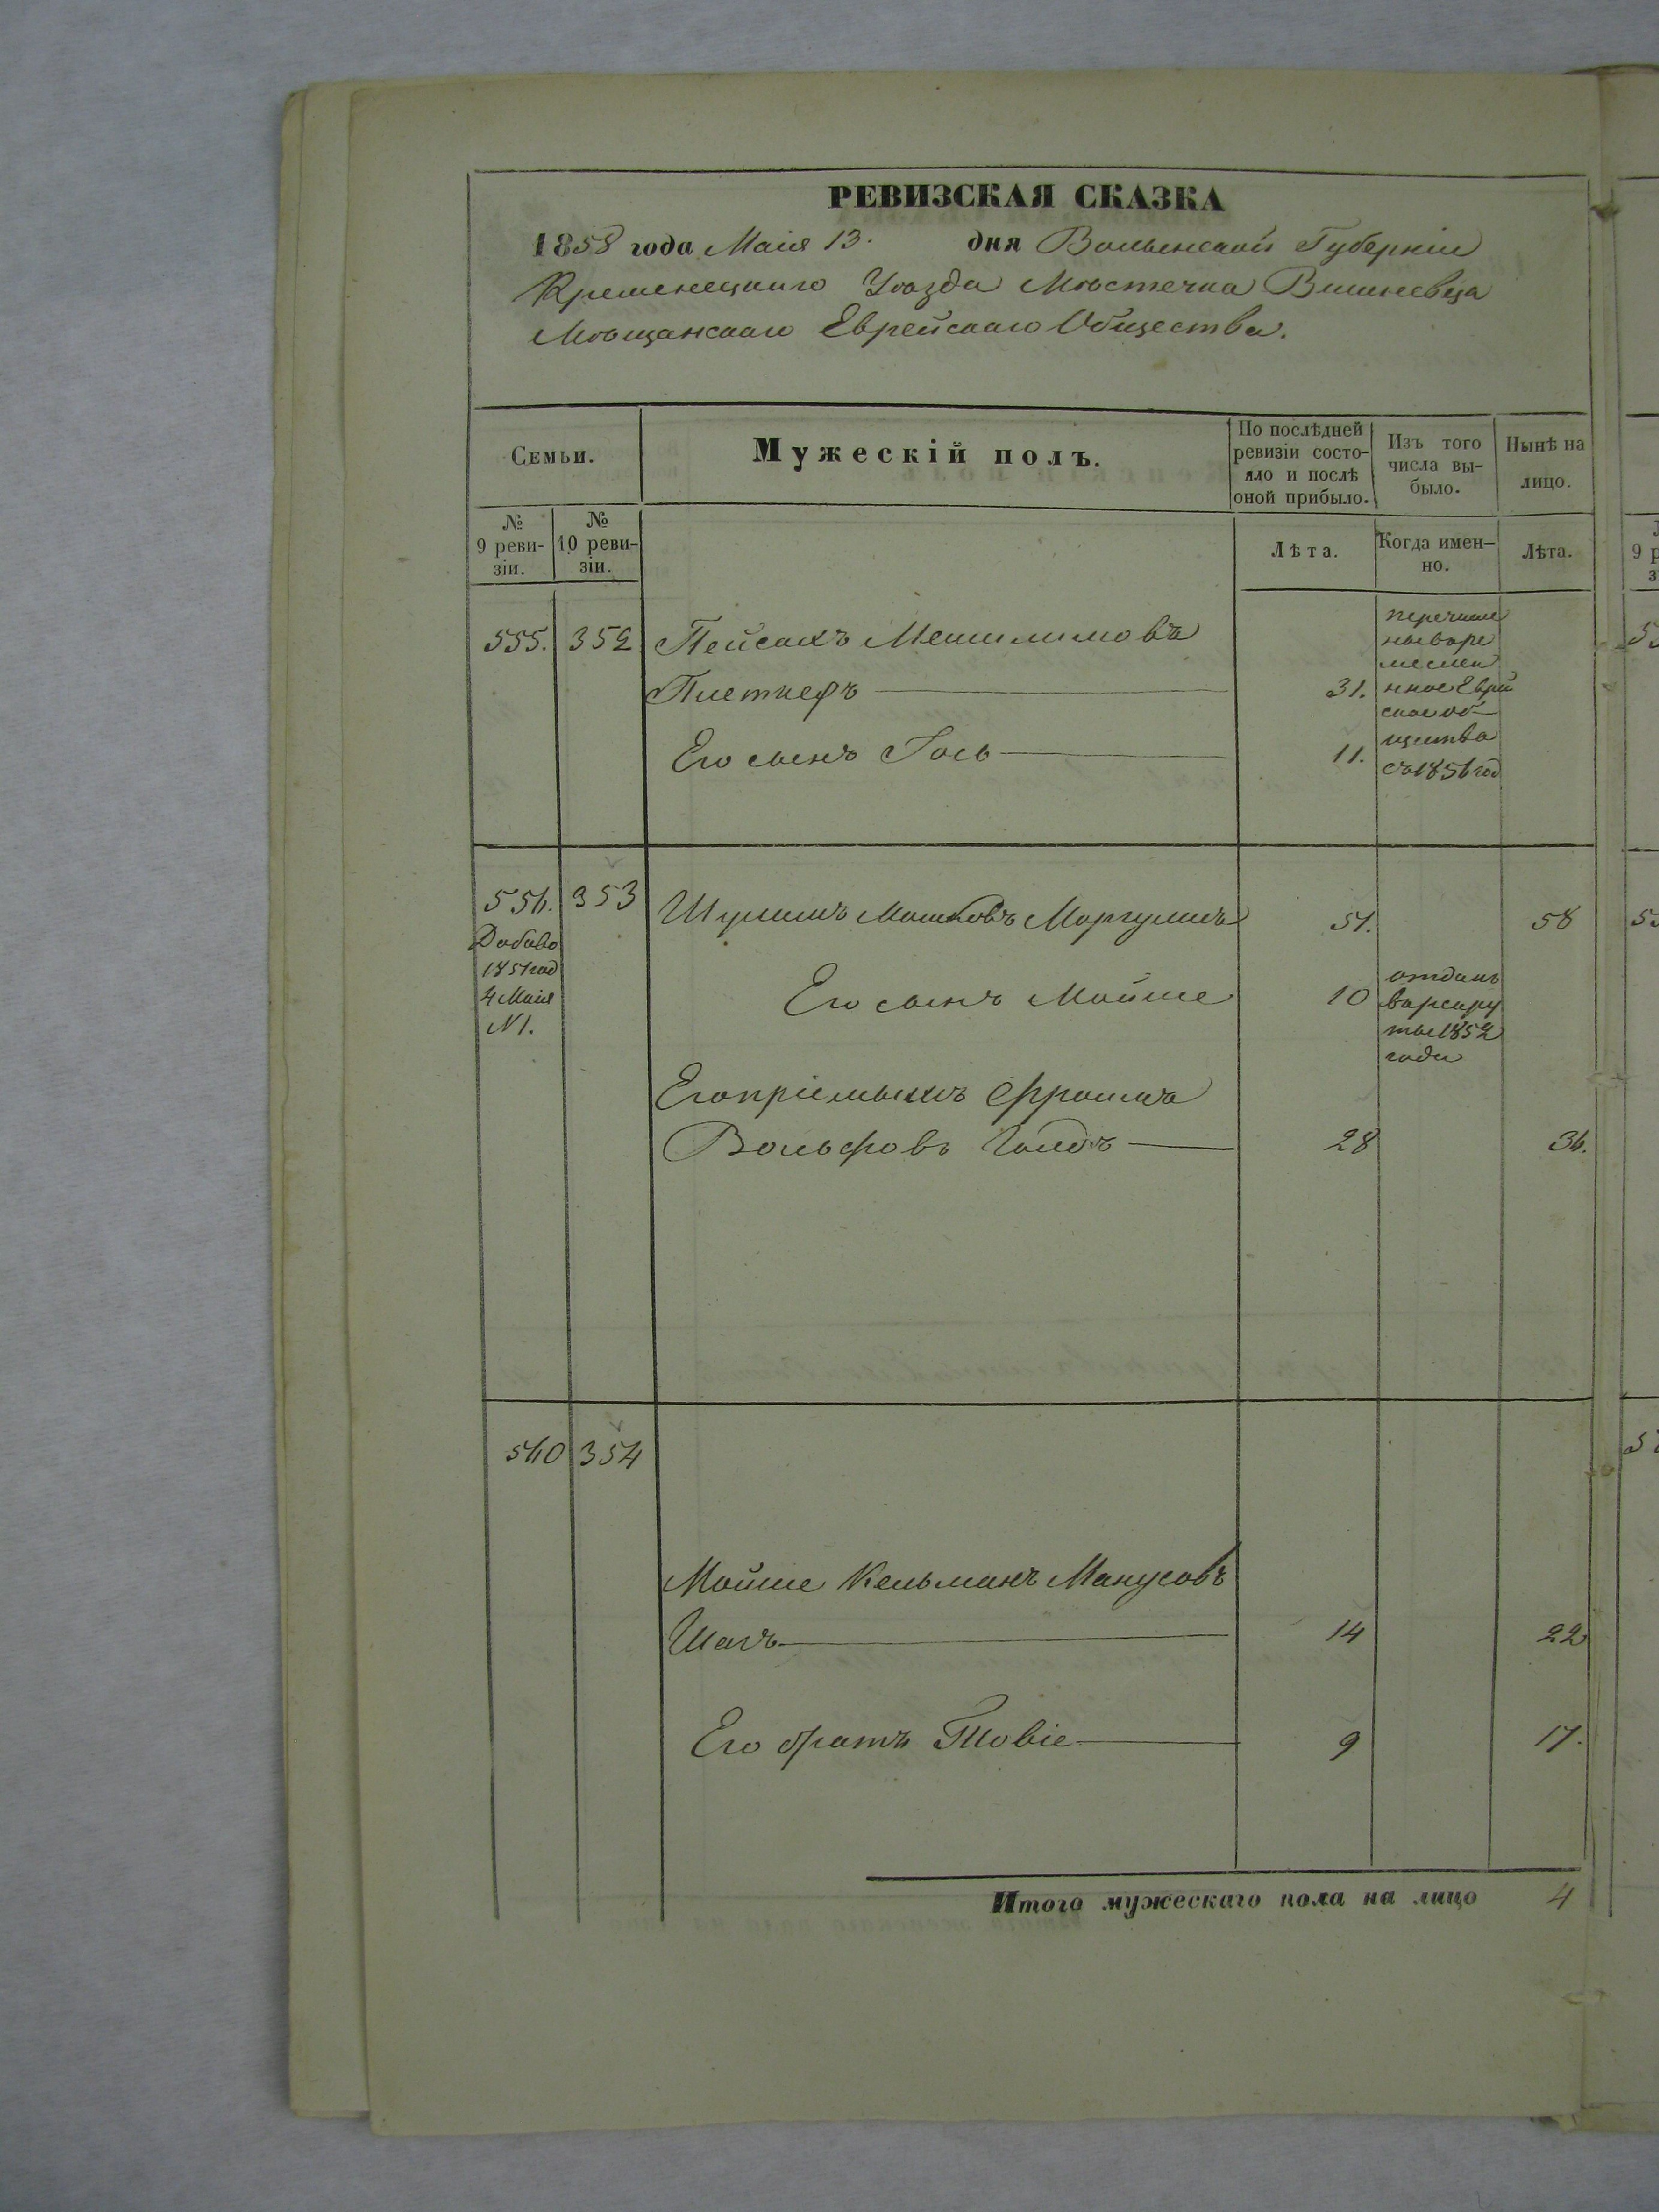 РЕВИЗСКАЯ СКАЗКА
1858 года Маія 13. дня Волынской Губерніи
Кременецкаго Уѣзда Мѣстечка Вишневца
Мѣщанскаго Еврейскаго Общества.
Семьи.
Мужескій полъ.
По послѣдней ревизіи состо-
яло и послѣ оной прибыло.
Изъ того числа вы-
было.
Нынѣ на лицо.
№ 9 реви-
зіи.
№ 10 реви-
зіи.
Лѣта.
Когда имен-
но.
Лѣта.
555. 352 Пейсахъ Мешилимовъ
31.
Его сынъ Іось 11.
перечисле
ны въ ре
меслен
ное Еврей
ское об-
щество
съ 1856 год
556. 353 Шулимъ Мошковъ Моргулисъ 51. 58
Добаво
1851 год
4 Маія
№ 1.
Его сынъ Мойше 10
отданъ
въ рекру
ты 1852
года
Его пріемышъ Фроимъ
Вольфовъ 28 36.
560 354
Мойше Кельманъ Манусовъ
14 22
Его братъ Товіе 9 17.
Итого мужескаго пола на лицо 4